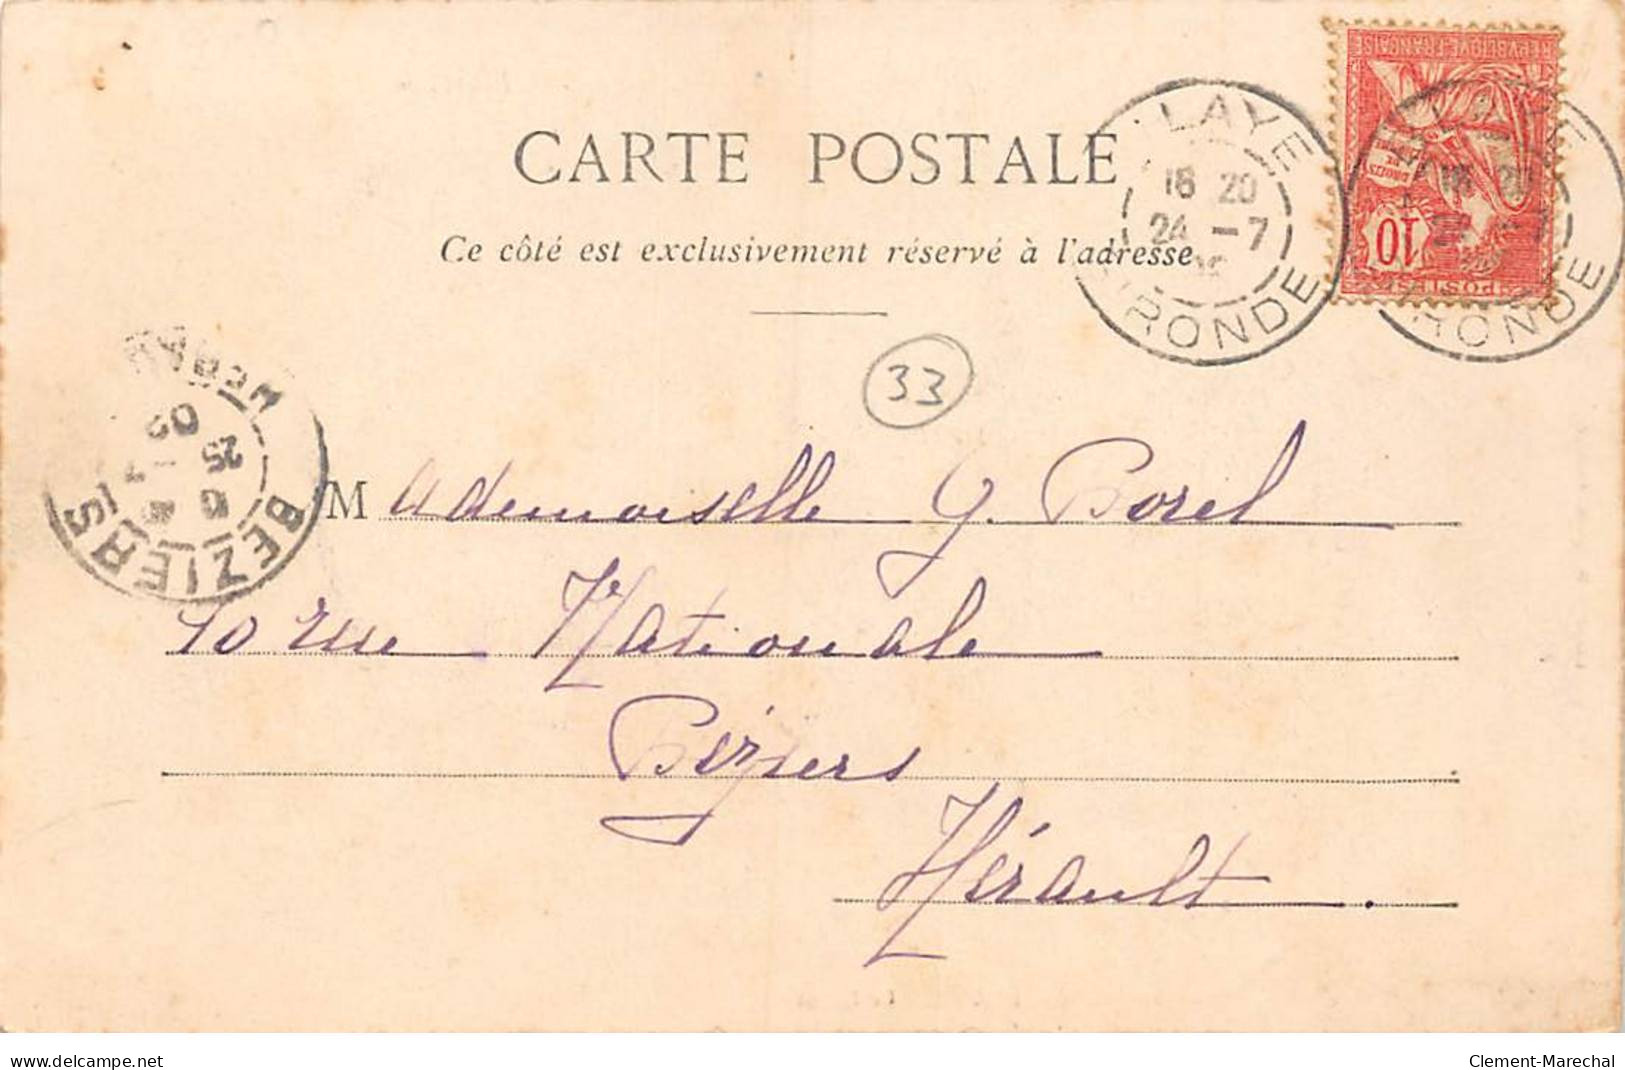 CARTE POSTALE
Ce côté est exclusivement réservé à l'adresse
LAYE
18 20
24 -7
RONDE
RÉPUBLIQUE FRANÇAISE
10
POSTES
33
BEZIERS
25
HERAULT
Mademoiselle G. Borel
10 rue Nationale
Béziers
Hérault.
www.delcampe.net
Clement-Marechal